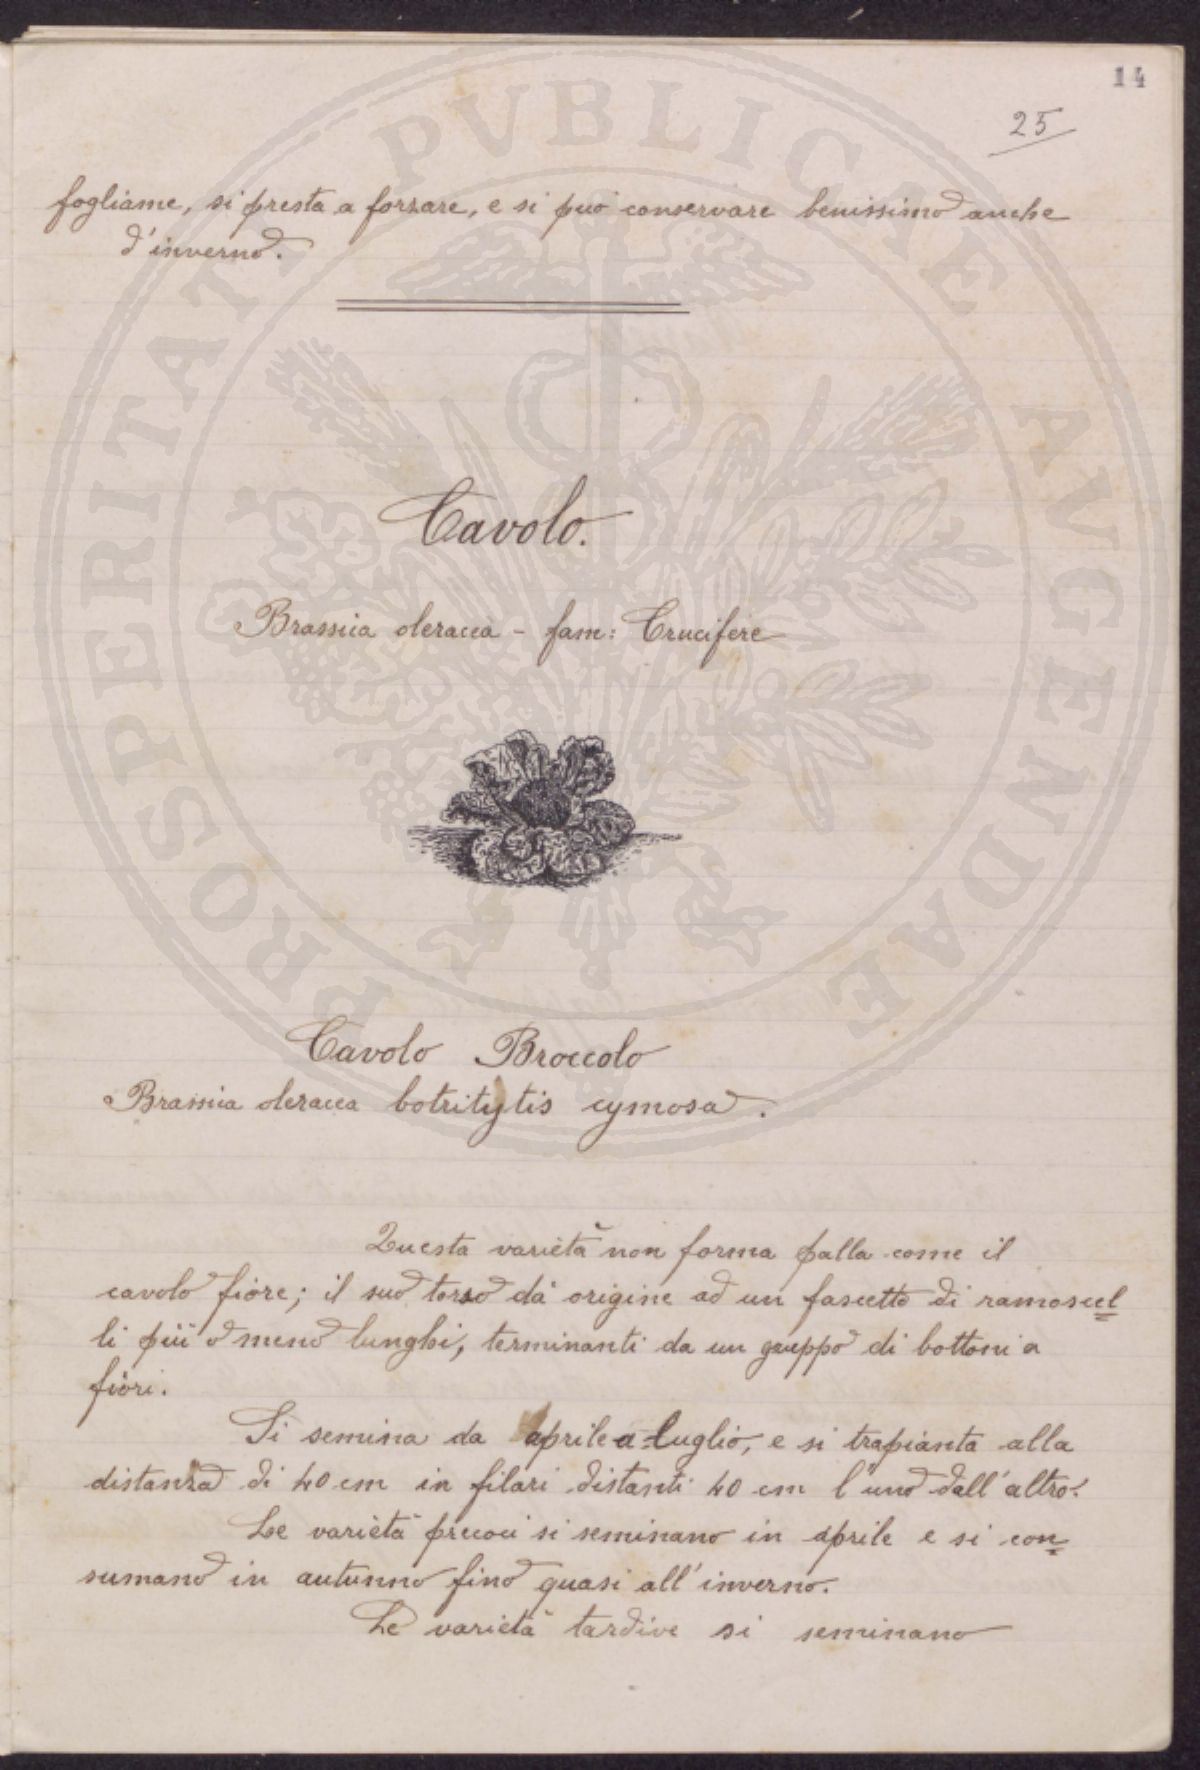 14
25
fogliame, si presta a forzare, e si può conservare benissimo anche
d'inverno.
Cavolo.
Brassica oleracea - fam: Crucifere
Cavolo Broccolo
Brassica oleracea botritytis cymosa.
Questa varietà non forma palla come il
cavolo fiore; il suo torso dà origine ad un fascetto di ramoscel
li più o meno lunghi, terminanti da un gruppo di bottoni a
fiori.
Si semina da aprile a luglio, e si trapianta alla
distanza di 40 cm in filari distanti 40 cm l'uno dall'altro.
Le varietà precoci si seminano in aprile e si con
sumano in autunno fino quasi all'inverno.
Le varietà tardive si seminano
PROSPERITATI PVBLICAE AVGENDAE